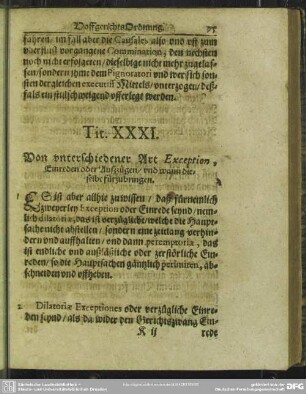 Hoffgerichts Ordnung. 75
fahren/ im fall aber die Causales also und uff zum
noch nicht erfolgeten/ dieselbige nicht mehr zugelassen
lassen/ sondern ihme dem Pignoratori und wer sich sonsten
sten der gleichen executiff Mittels/ unterzogen/ deßfalls
falls ein stillschweigend offerlegt werden.
Tit. XXXI.
Von unterschiedener Art Exception,
Einreden oder Außzügen/ und wann dieselbe
selbe fürzubringen.
1 ES ist aber allhie zuwissen/ daß fürnemlich
zweyerley Exception oder Einrede seynd/ nemlich
lich dilatoriæ, das ist verzügliche/ welche die Hauptsache
sache nicht abstellen/ sondern eine zeitlang verhindern
dern und auffhalten/ und dann peremptoriæ, das
ist endliche und außschließliche oder zerstörliche Einreden
reden/ so die Hauptsachen gäntzlich perimiren, abschneiden
schneiden und uffheben.
2 Dilatoriæ Exceptiones oder verzügliche Einreden
den seynd/ als da wider den Gerichtszwang Ein-
K ij rede